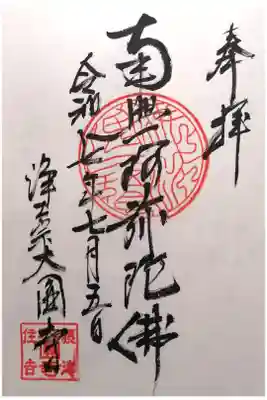 奉拝
南無阿弥陀佛
令和七年七月五日
淨土宗大圓寺
住吉